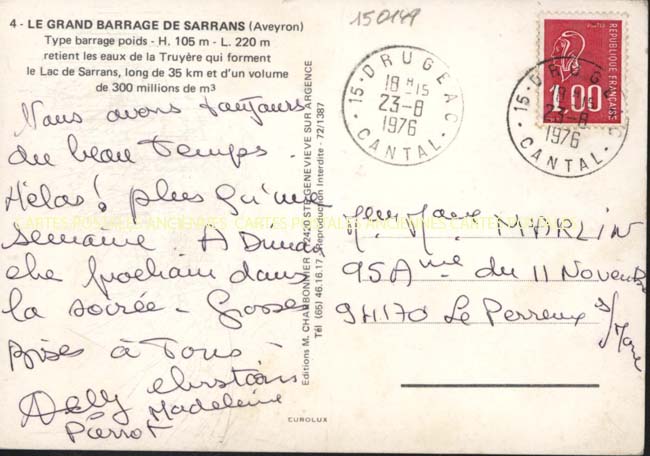 150149
4 - LE GRAND BARRAGE DE SARRANS (Aveyron)
Type barrage poids - H. 105 m - L. 220 m
retient les eaux de la Truyère qui forment
le Lac de Sarrans, long de 35 km et d'un volume
de 300 millions de m³
Nous avons toujours
du beau temps.
Hélas! plus qu'une
semaine A Diman
che prochain dans
la soirée - Grosses
Bises à Tous -
Christian
Madeleine
Pierrot
Editions M. CHARBONNIER - 12420 STE-GENEVIEVE SUR ARGENCE
Tél (65) 46.16.17 - Reproduction Interdite - 72/1387
EUROLUX
15 - DRUGEAC
18 H 15
23-8
1976
CANTAL
REPUBLIQUE FRANÇAISE
1,00
15 - DRUGEAC
23-8
1976
CANTAL
MARLIN
95 A du 11 Novembre
94170 Le Perreux
s/Marne
CARTES POSTALES ANCIENNES CARTES POSTALES ANCIENNES CARTES POSTALES